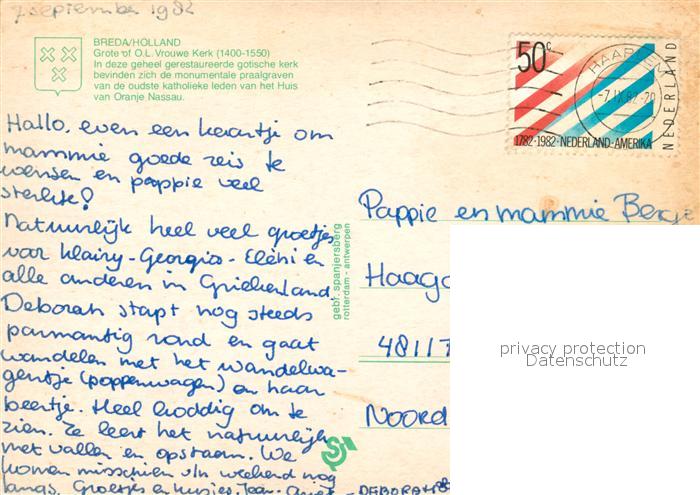 7 september 1982
BREDA/HOLLAND
Grote of O.L. Vrouwe Kerk (1400-1550)
In deze geheel gerestaureerde gotische kerk
bevinden zich de monumentale praalgraven
van de oudste katholieke leden van het Huis
van Oranje Nassau.
50c
HAARLEM
-7.IX.82-20
NEDERLAND
1782·1982·NEDERLAND-AMERIKA
Hallo, even een kaartje om
mammie goede reis te
wensen en pappie veel
sterkte!
Natuurlijk heel veel groetjes
voor Klairy-Georgios-Eléni en
alle anderen in Griekenland.
Deborah stapt nog steeds
parmantig rond en gaat
wandelen met het wandelwa-
gentje (poppenwagen) en haar
beertje. Heel koddig om te
zien. Ze leert het natuurlijk
met vallen en opstaan. We
komen misschien v/h weekend nog
langs. Groetjes en kusjes, DEBORAH
gebr. spanjersberg
rotterdam - antwerpen
Pappie en mammie
Haag
4811
Noord
privacy protection
Datenschutz